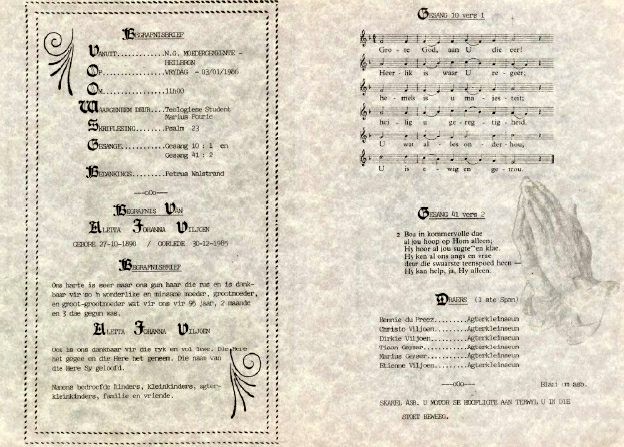 BEGRAFNISBRIEF
VANUIT............N.G. MOEDERGEMEENTE - HEILBRON
OP................VRYDAG - 03/01/1986
OM................11h00
WAARGENEEM DEUR...Teologiese Student
Marius Fourie
SKRIFLESING.......Psalm 23
GESANGE...........Gesang 10 : 1 en
Gesang 41 : 2
BEDANKINGS........Petrus Walstrand
---oOo---
BEGRAFNIS VAN
ALETTA JOHANNA VILJOEN
GEBORE 27-10-1890 / OORLEDE 30-12-1985
BEGRAFNISBRIEF
Ons harte is seer maar ons gun haar die rus en is dank-
baar vir so 'n wonderlike en minsame moeder, grootmoeder,
en groot-grootmoeder wat vir ons vir 95 jaar, 2 maande
en 3 dae gegun was.
ALETTA JOHANNA VILJOEN
Ons is ons dankbaar vir die ryk en vol lewe. Die Here
het gegee en die Here het geneem. Die naam van
die Here Sy geloofd.
Namens bedroefde kinders, kleinkinders, agter-
kleinkinders, familie en vriende.
GESANG 10 vers 1
Gro - te God, aan U die eer!
Heer - lik is waar U re - geer;
he - mels is u ma - jes - teit;
hei - lig u ge - reg - tig - heid.
U wat al - les on - der - hou,
U is e - wig en ge - trou.
GESANG 41 vers 2
2 Bou in kommervolle dae
al jou hoop op Hom alleen;
Hy hoor al jou sugte en klae.
Hy ken al ons angs en vrae
deur die swaarste teenspoed heen —
Hy kan help, ja, Hy alleen.
DRAERS (1 ste Span)
Bennie du Preez........Agterkleinseun
Christo Viljoen........Agterkleinseun
Dirkie Viljoen.........Agterkleinseun
Tiaan Geyser...........Agterkleinseun
Marius Geyser..........Agterkleinseun
Etienne Viljoen........Agterkleinseun
---oOo---
Blaai om asb.
SKAKEL ASB. U MOTOR SE HOOFLIGTE AAN TERWYL U IN DIE
STOET BEWEEG.